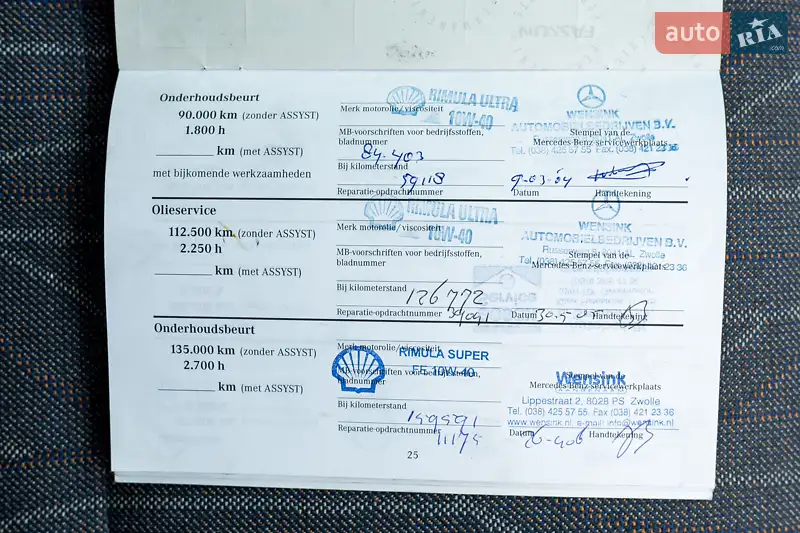 auto RIA .com
Onderhoudsbeurt
90.000 km (zonder ASSYST)
1.800 h
________ km (met ASSYST)
met bijkomende werkzaamheden
Merk motorolie/viscositeit
RIMULA ULTRA
10W-40
MB-voorschriften voor bedrijfsstoffen,
bladnummer
Bij kilometerstand
84.403
Reparatie-opdrachtnummer
59118
WENSINK
AUTOMOBIELBEDRIJVEN B.V.
Stempel van de
Mercedes-Benz-servicewerkplaats
Tel. (038) 425 57 55 Fax. (038) 421 23 36
9-03-04
Datum
Handtekening
Olieservice
112.500 km (zonder ASSYST)
2.250 h
________ km (met ASSYST)
Merk motorolie/viscositeit
RIMULA ULTRA
10W-40
MB-voorschriften voor bedrijfsstoffen,
bladnummer
Bij kilometerstand
126772
Reparatie-opdrachtnummer
WENSINK
AUTOMOBIELBEDRIJVEN B.V.
Zwolle
Stempel van de
Mercedes-Benz-servicewerkplaats
Datum
Handtekening
Onderhoudsbeurt
135.000 km (zonder ASSYST)
2.700 h
________ km (met ASSYST)
Merk motorolie/viscositeit
RIMULA SUPER
FE 10W-40
MB-voorschriften voor bedrijfsstoffen,
bladnummer
Bij kilometerstand
159591
Reparatie-opdrachtnummer
11175
Stempel van de
Wensink
Mercedes-Benz-servicewerkplaats
Lippestraat 2, 8028 PS Zwolle
Tel. (038) 425 57 55 Fax (038) 421 23 36
www.wensink.nl e-mail: info@wensink.nl
Datum
Handtekening
25